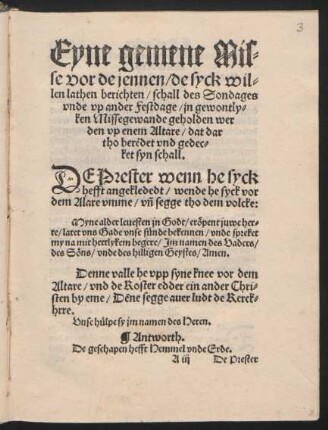 3
Eyne gemene Mis-
se vor de jennen / de syck wil-
len lathen berichten / schall des Sondages
vnde vp ander Festdage / jn gewontly-
ken Missegewande geholden wer
den vp enem Altare / dat dar
tho berëdet vnd gedec-
ket syn schall.
DE Prester wenn he syck
hefft angekledet / wende he syck vor
dem Altare vmme / vñ segge tho dem volcke:
Myne alder leuesten jn Godt / eröpent juwe her-
te / latet vns Gade vnse sünde bekennen / vnde spreket
my na mit hertlykem begere / Jm namen des Vaders /
des Söns / vnde des hilligen Geystes / Amen.
Denne valle he vpp syne knee vor dem
Altare / vnd de Koster edder ein ander Chri-
sten by eme / Dëne segge auer ludt de Kerck-
herre.
Vnse hülpe sy jm namen des Heren.
¶ Antworth.
De geschapen hefft Hemmel vnde Erde.
A iij De Prester